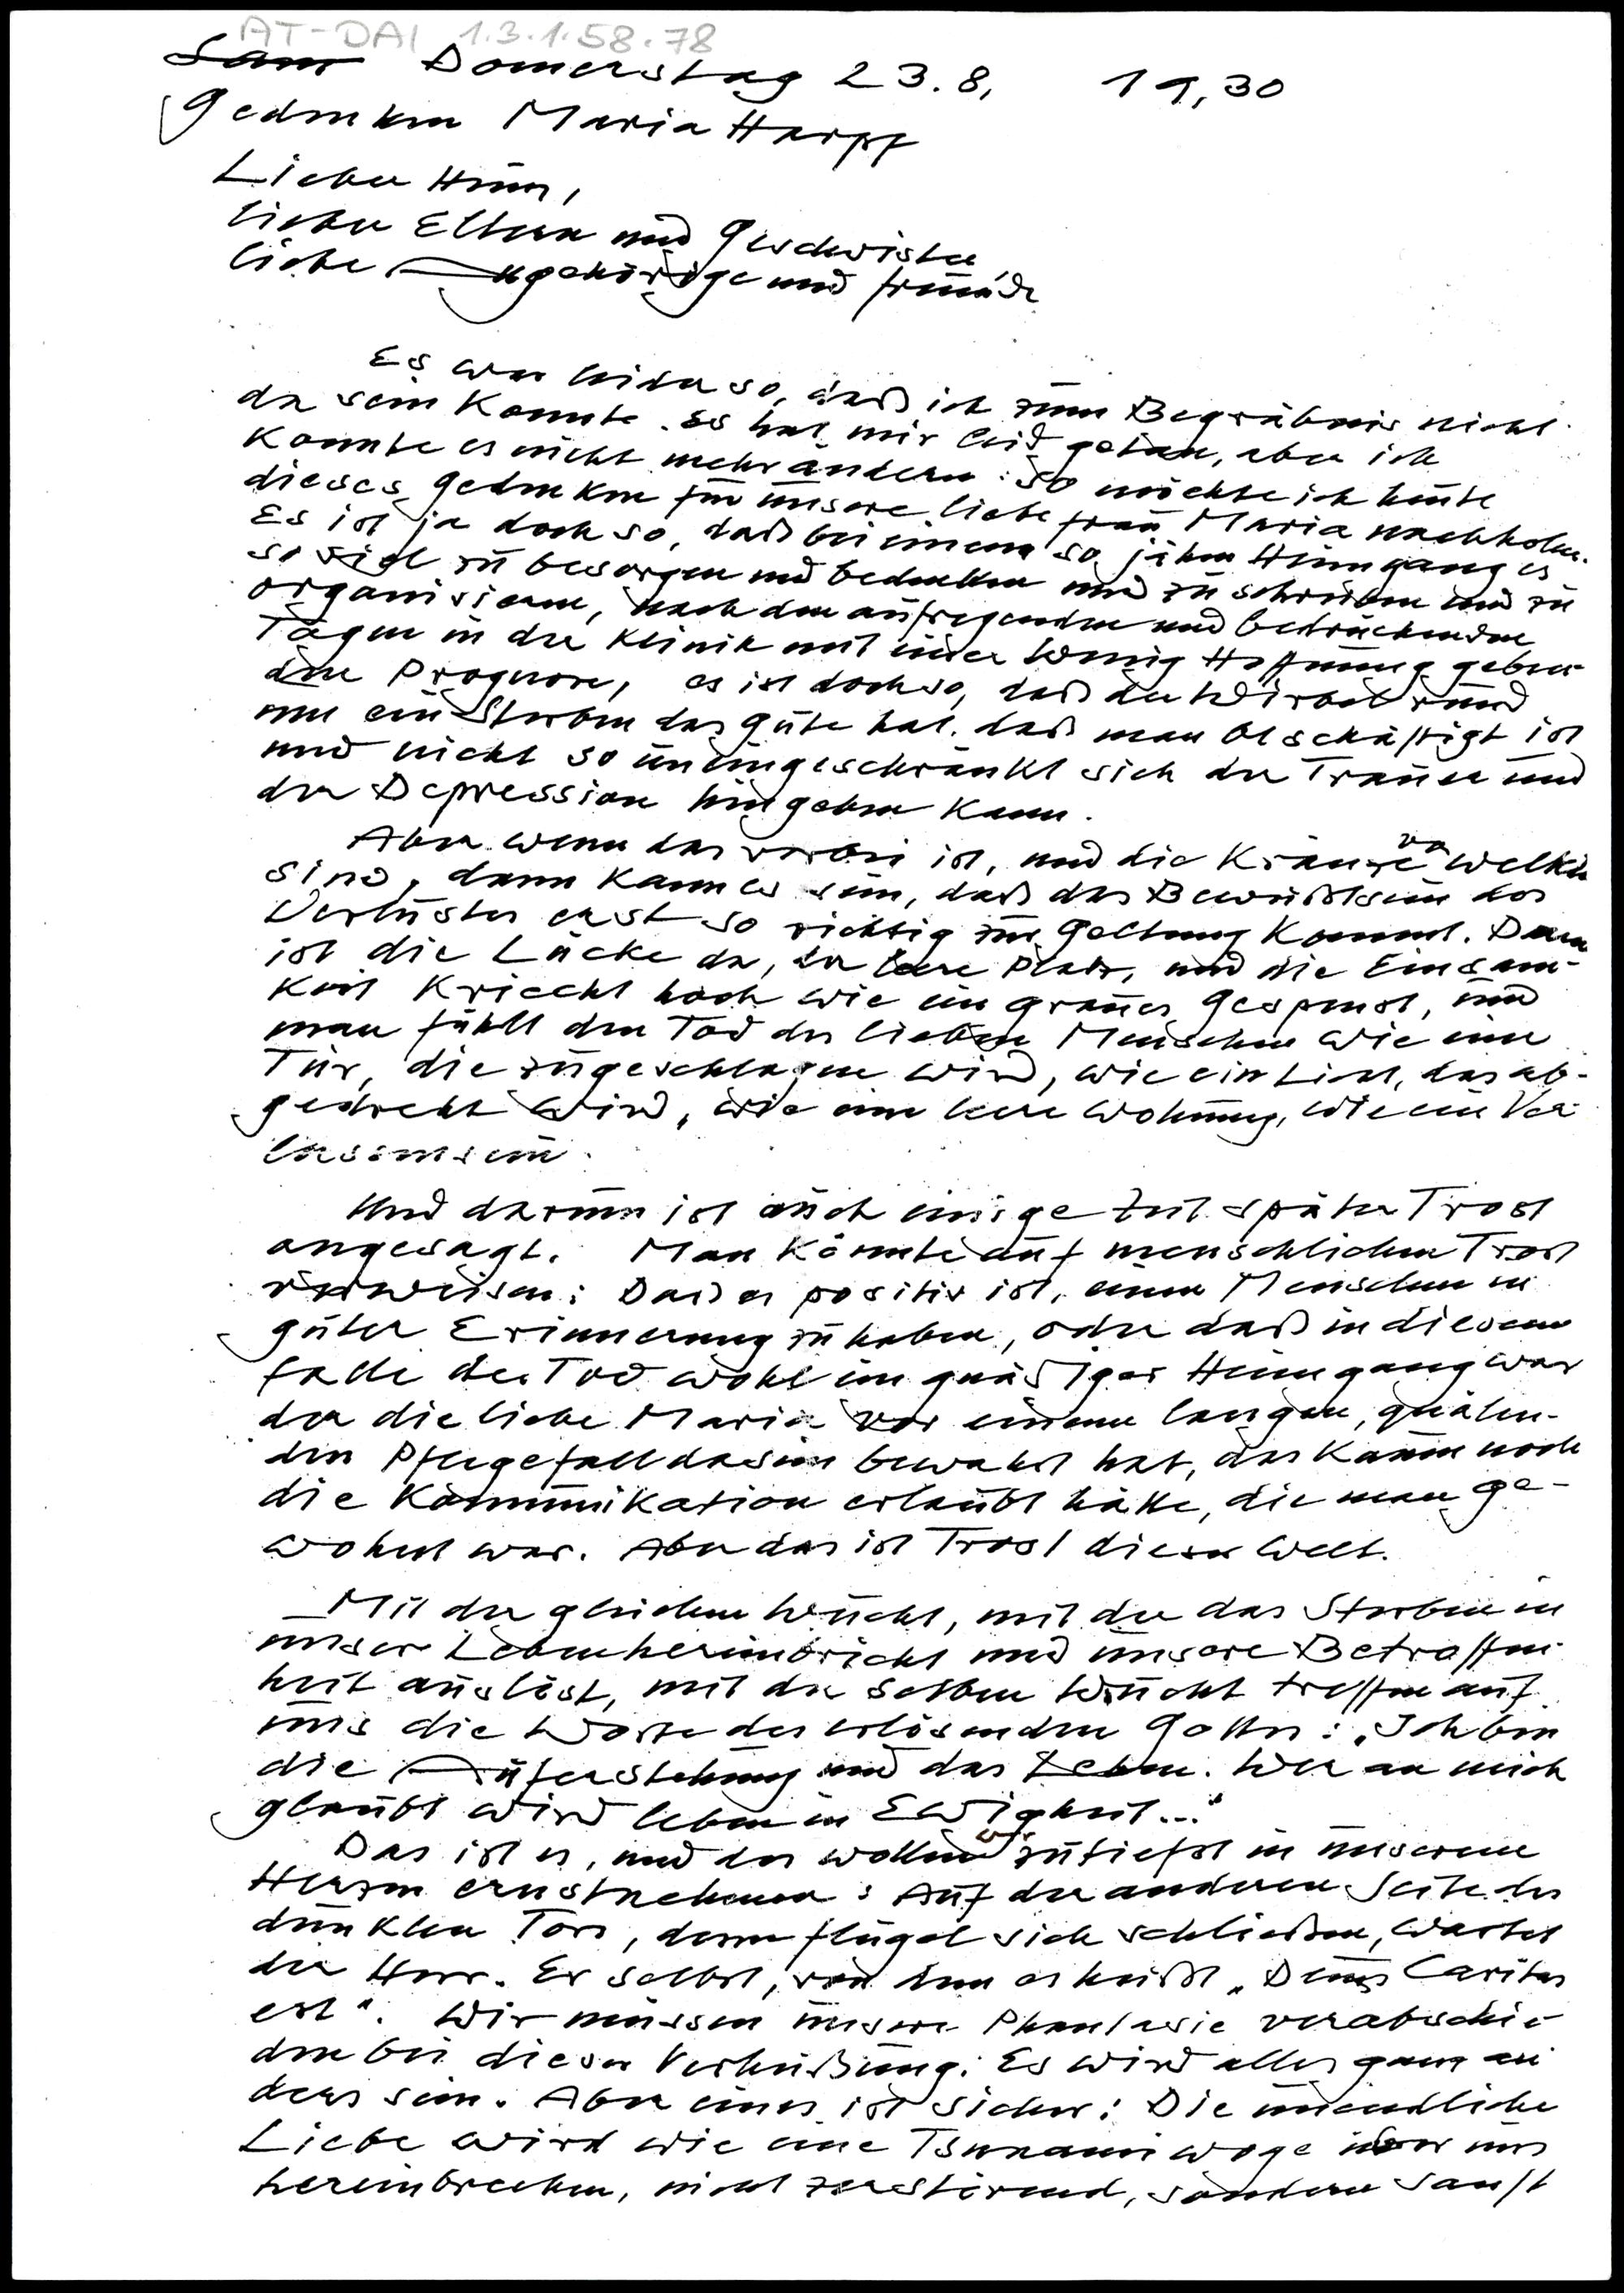 AT-DAI 1.3.1.58.78
Sam Donnerstag 23.8, 19,30
Gedenken Maria Harpf
Lieber Heinz,
liebe Eltern und Geschwister,
liebe Angehörige und Freunde
Es war leider so, daß ich zum Begräbnis nicht
da sein konnte. Es hat mir leid getan, aber ich
konnte es nicht mehr ändern. So möchte ich heute
dieses Gedenken für unsere liebe Frau Maria nachholen.
Es ist ja doch so, daß bei einem so jähen Heimgang es
so viel zu besorgen und bedenken und zu schreiben und zu
organisieren, nach den aufregenden und bedrückenden
Tagen in der Klinik mit einer wenig Hoffnung geben-
den Prognose, es ist doch so, daß der Wirbel rund
um ein Sterben das Gute hat, daß man beschäftigt ist
und nicht so uneingeschränkt sich der Trauer und
der Depression hingeben kann.
Aber wenn das vorbei ist, und die Kränze verwelkt
sind, dann kann es sein, daß das Bewußtsein des
Verlustes erst so richtig zur Geltung kommt. Dann
ist die Lücke da, der leere Platz, und die Einsam-
keit kriecht hoch wie ein graues Gespenst, und
man fühlt den Tod des lieben Menschen wie eine
Tür, die zugeschlagen wird, wie ein Licht, das ab-
gedreht wird, wie eine leere Wohnung, wie ein Ver-
lassensein.
Und darum ist auch einige Zeit später Trost
angesagt. Man könnte auf menschlichen Trost
verweisen: Daß es positiv ist, einen Menschen in
guter Erinnerung zu haben, oder daß in diesem
Falle der Tod wohl ein gnädiger Heimgang war
der die liebe Maria vor einem langen, quälen-
den Pflegefalldasein bewahrt hat, das kaum noch
die Kommunikation erlaubt hätte, die man ge-
wohnt war. Aber das ist Trost dieser Welt.
Mit der gleichen Wucht, mit der das Sterben in
unser Leben hereinbricht und unsere Betroffen-
heit auslöst, mit der selben Wucht treffen auf
uns die Worte des erlösenden Gottes: "Ich bin
die Auferstehung und das Leben. Wer an mich
glaubt wird leben in Ewigkeit..."
Das ist es, und das wollen wir zutiefst in unserem
Herzen ernstnehmen: Auf der anderen Seite des
dunklen Tors, deren Flügel sich schließen, wartet
der Herr. Er selbst, von dem es heißt "Deus Caritas
est". Wir müssen unsere Phantasie verabschie-
den bei dieser Verheißung. Es wird alles ganz an-
ders sein. Aber eines ist sicher: Die unendliche
Liebe wird wie eine Tsunamiwoge über uns
hereinbrechen, nicht zerstörend, sondern sanft